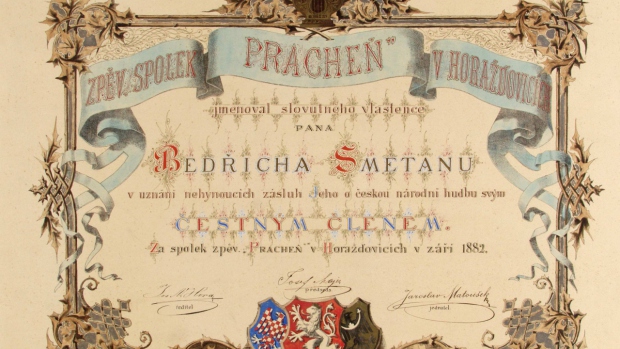 ZPĚV. SPOLEK „PRÁCHEŇ“ V HORAŽĎOVICÍCH
jmenoval slovutného vlastence
PANA
BEDŘICHA SMETANU
v uznání nehynoucích zásluh Jeho o českou národní hudbu svým
ČESTNÝM ČLENEM.
Za spolek zpěv. „PRÁCHEŇ“ v Horažďovicích v září 1882.
Josef
předseda
ředitel
Jaroslav Matoušek
jednatel